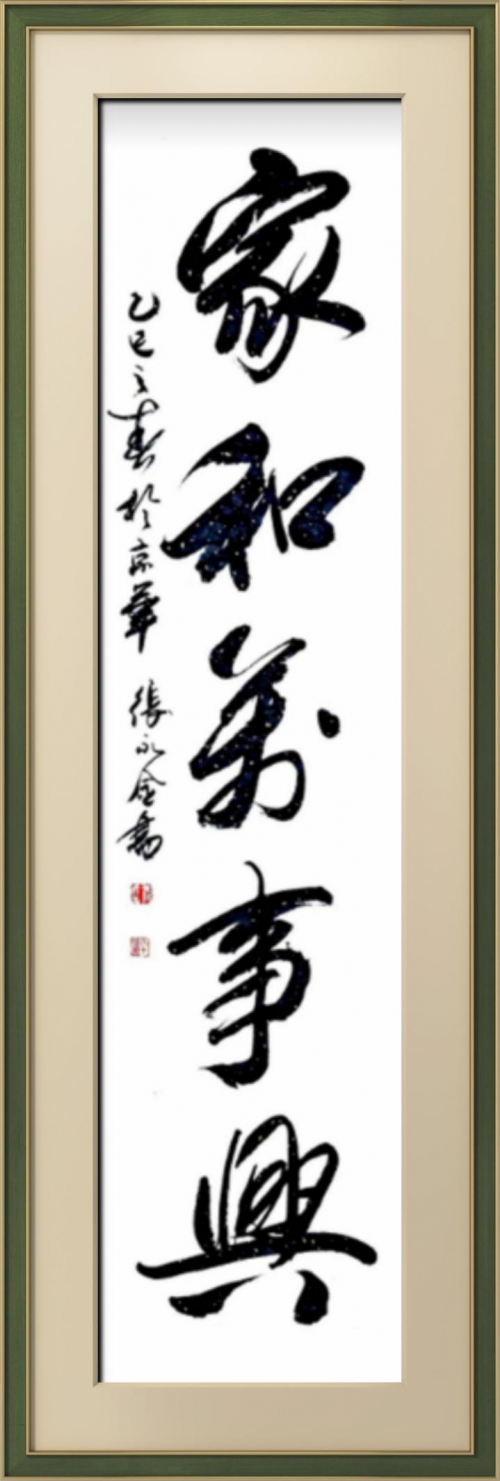 家和萬事興
乙巳之春於京華 張永金書